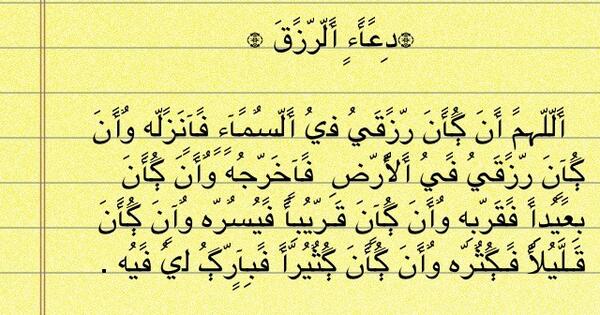 ۞دِعًأَءٍ أَلّرّزًقَ ۞
أَلّلّهمً أَنَ كُأَنَ رّزًقَيُ فيُ أَلّسُمًأَء فًأَنَزًلّه وٌأَنَ
كُأَنِ رّزًقَيُ فًيُ أَلأَرّضِ فًأَخَرّجُه وٌأَنَ كُأَنَ
بعًيُدأَ فًقَرّبه وٌأَنَ كُأَنَ قَرّيُبأَ فًيُسُرّه وٌأَنِ كُأَنَ
قَلّيُلأَ فًكُثًرّه وٌأَنَ كُأَنَ كُثًيُرّأَ فًبأَرّكُ ليُ فًيُه .